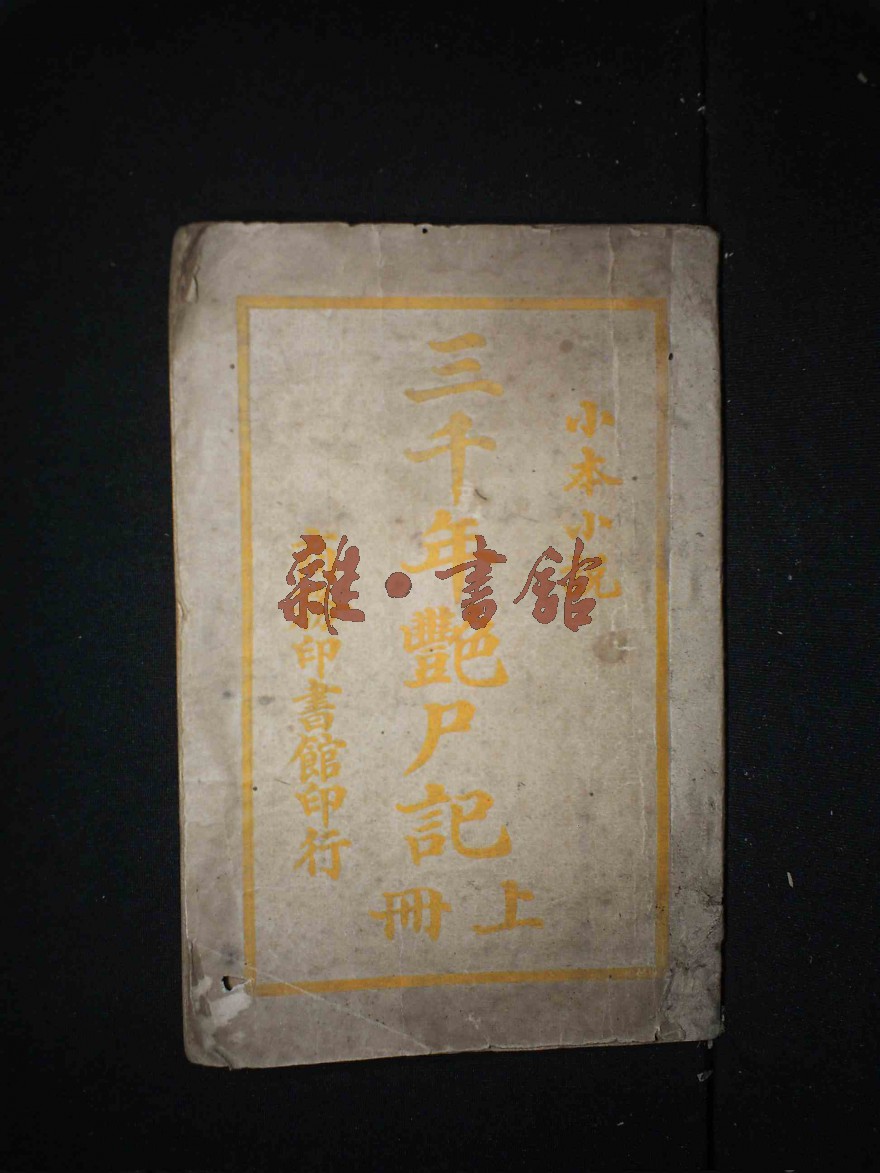 小本小說
三千年艷尸記
上冊
商務印書館印行
雜·書館